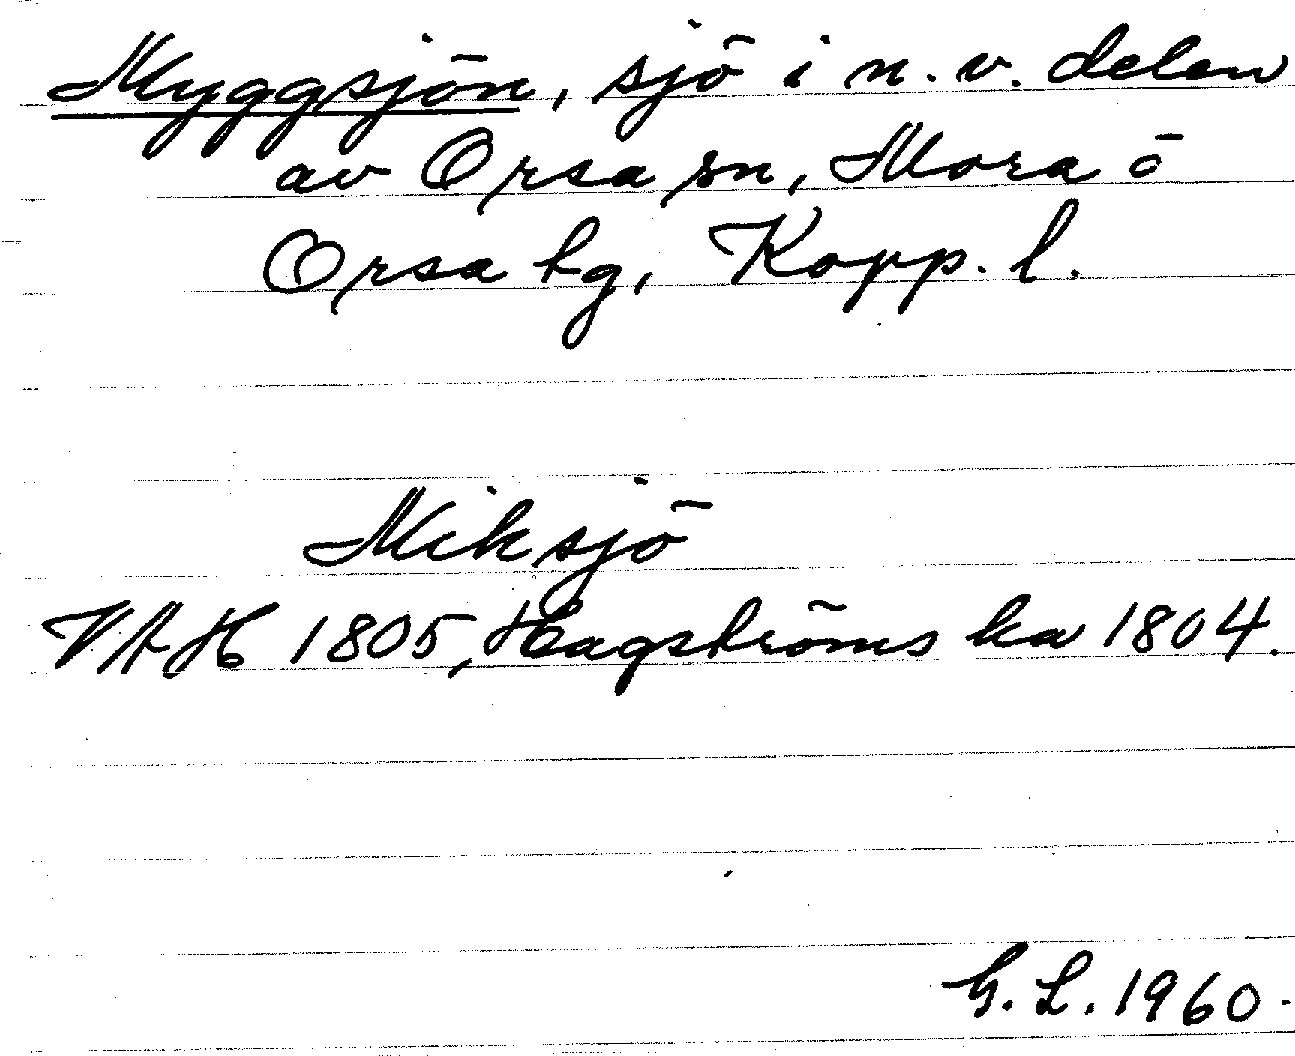 Myggsjön, sjö i n.v. delen
av Orsa sn, Mora o
Orsa tg, Kopp. l.
Miksjö
VAH 1805, Hagströms ka 1804.
G. L. 1960.